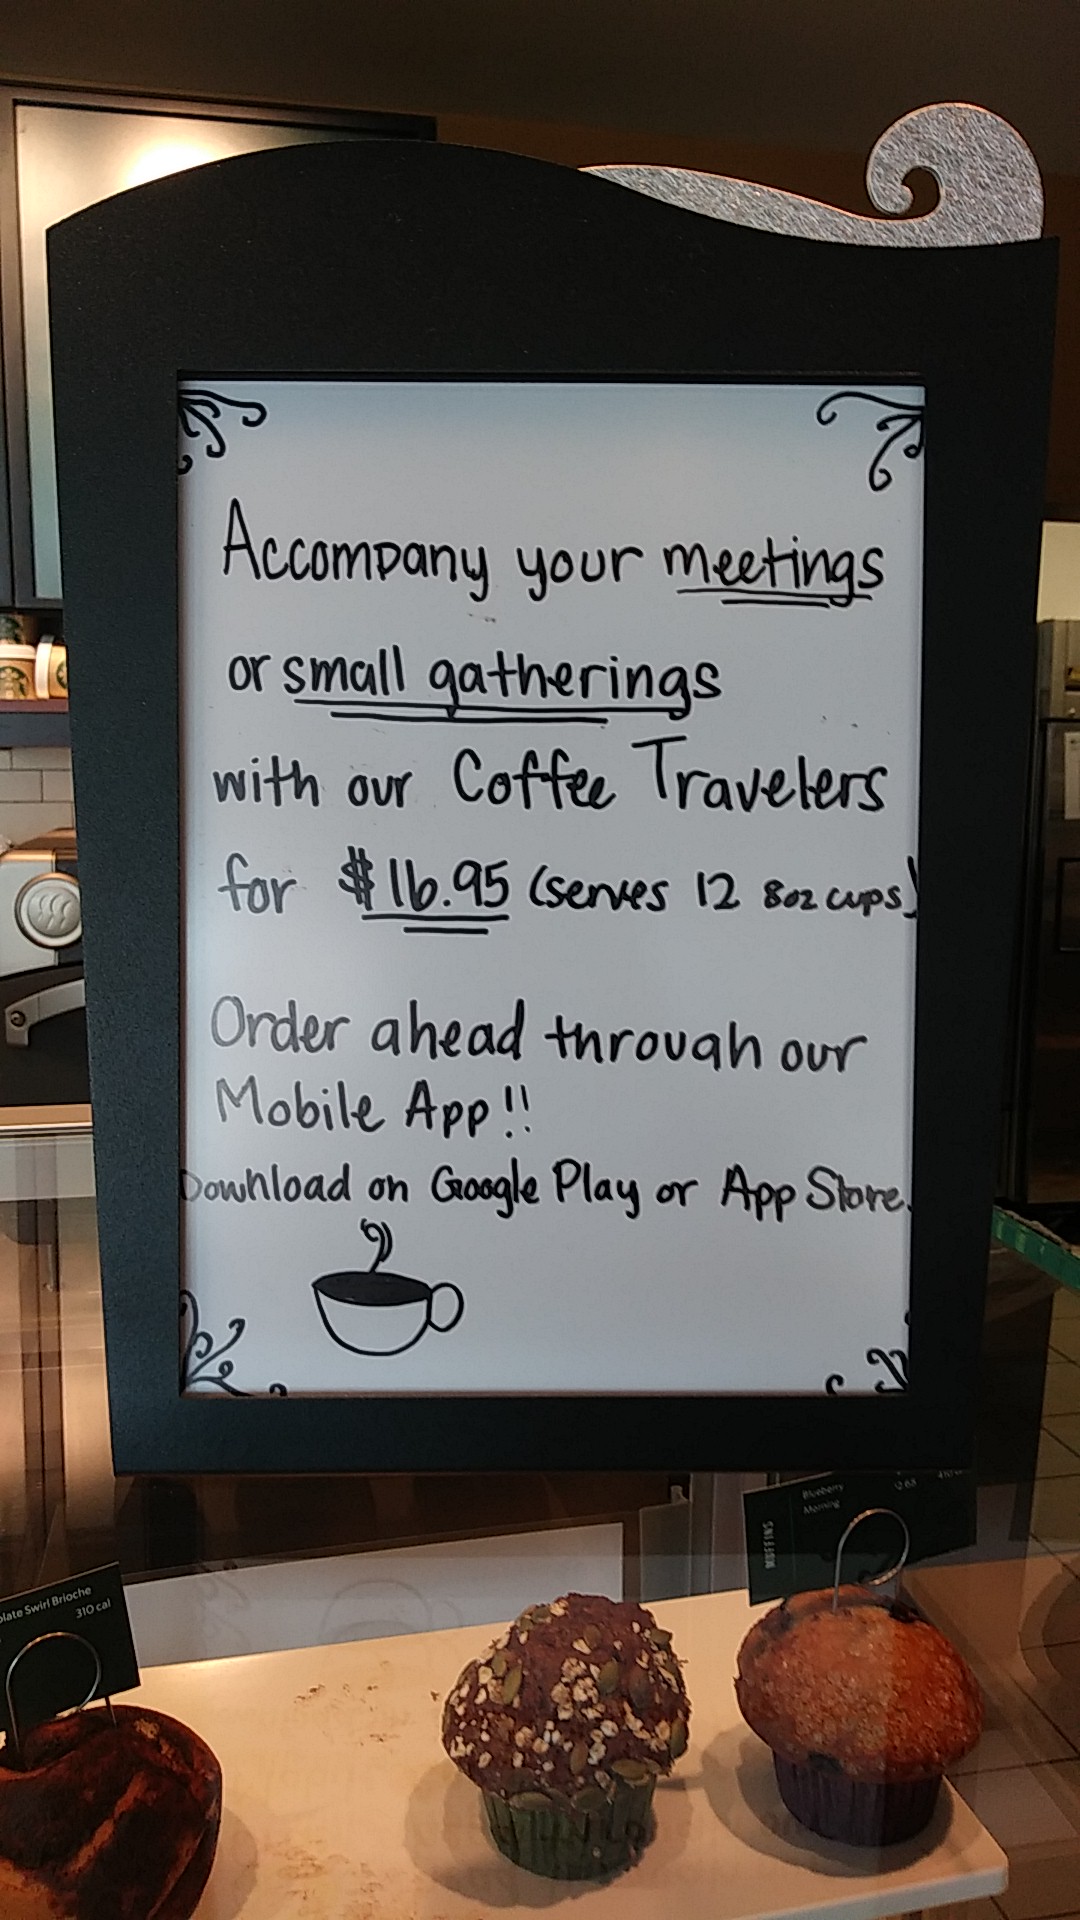 Accompany your meetings
or small gatherings
with our Coffee Travelers
for $16.95 (serves 12 8oz cups)
Order ahead through our
Mobile App!!
Download on Google Play or App Store.
Swirl Brioche
310 cal
MUFFINS
Blueberry
Morning